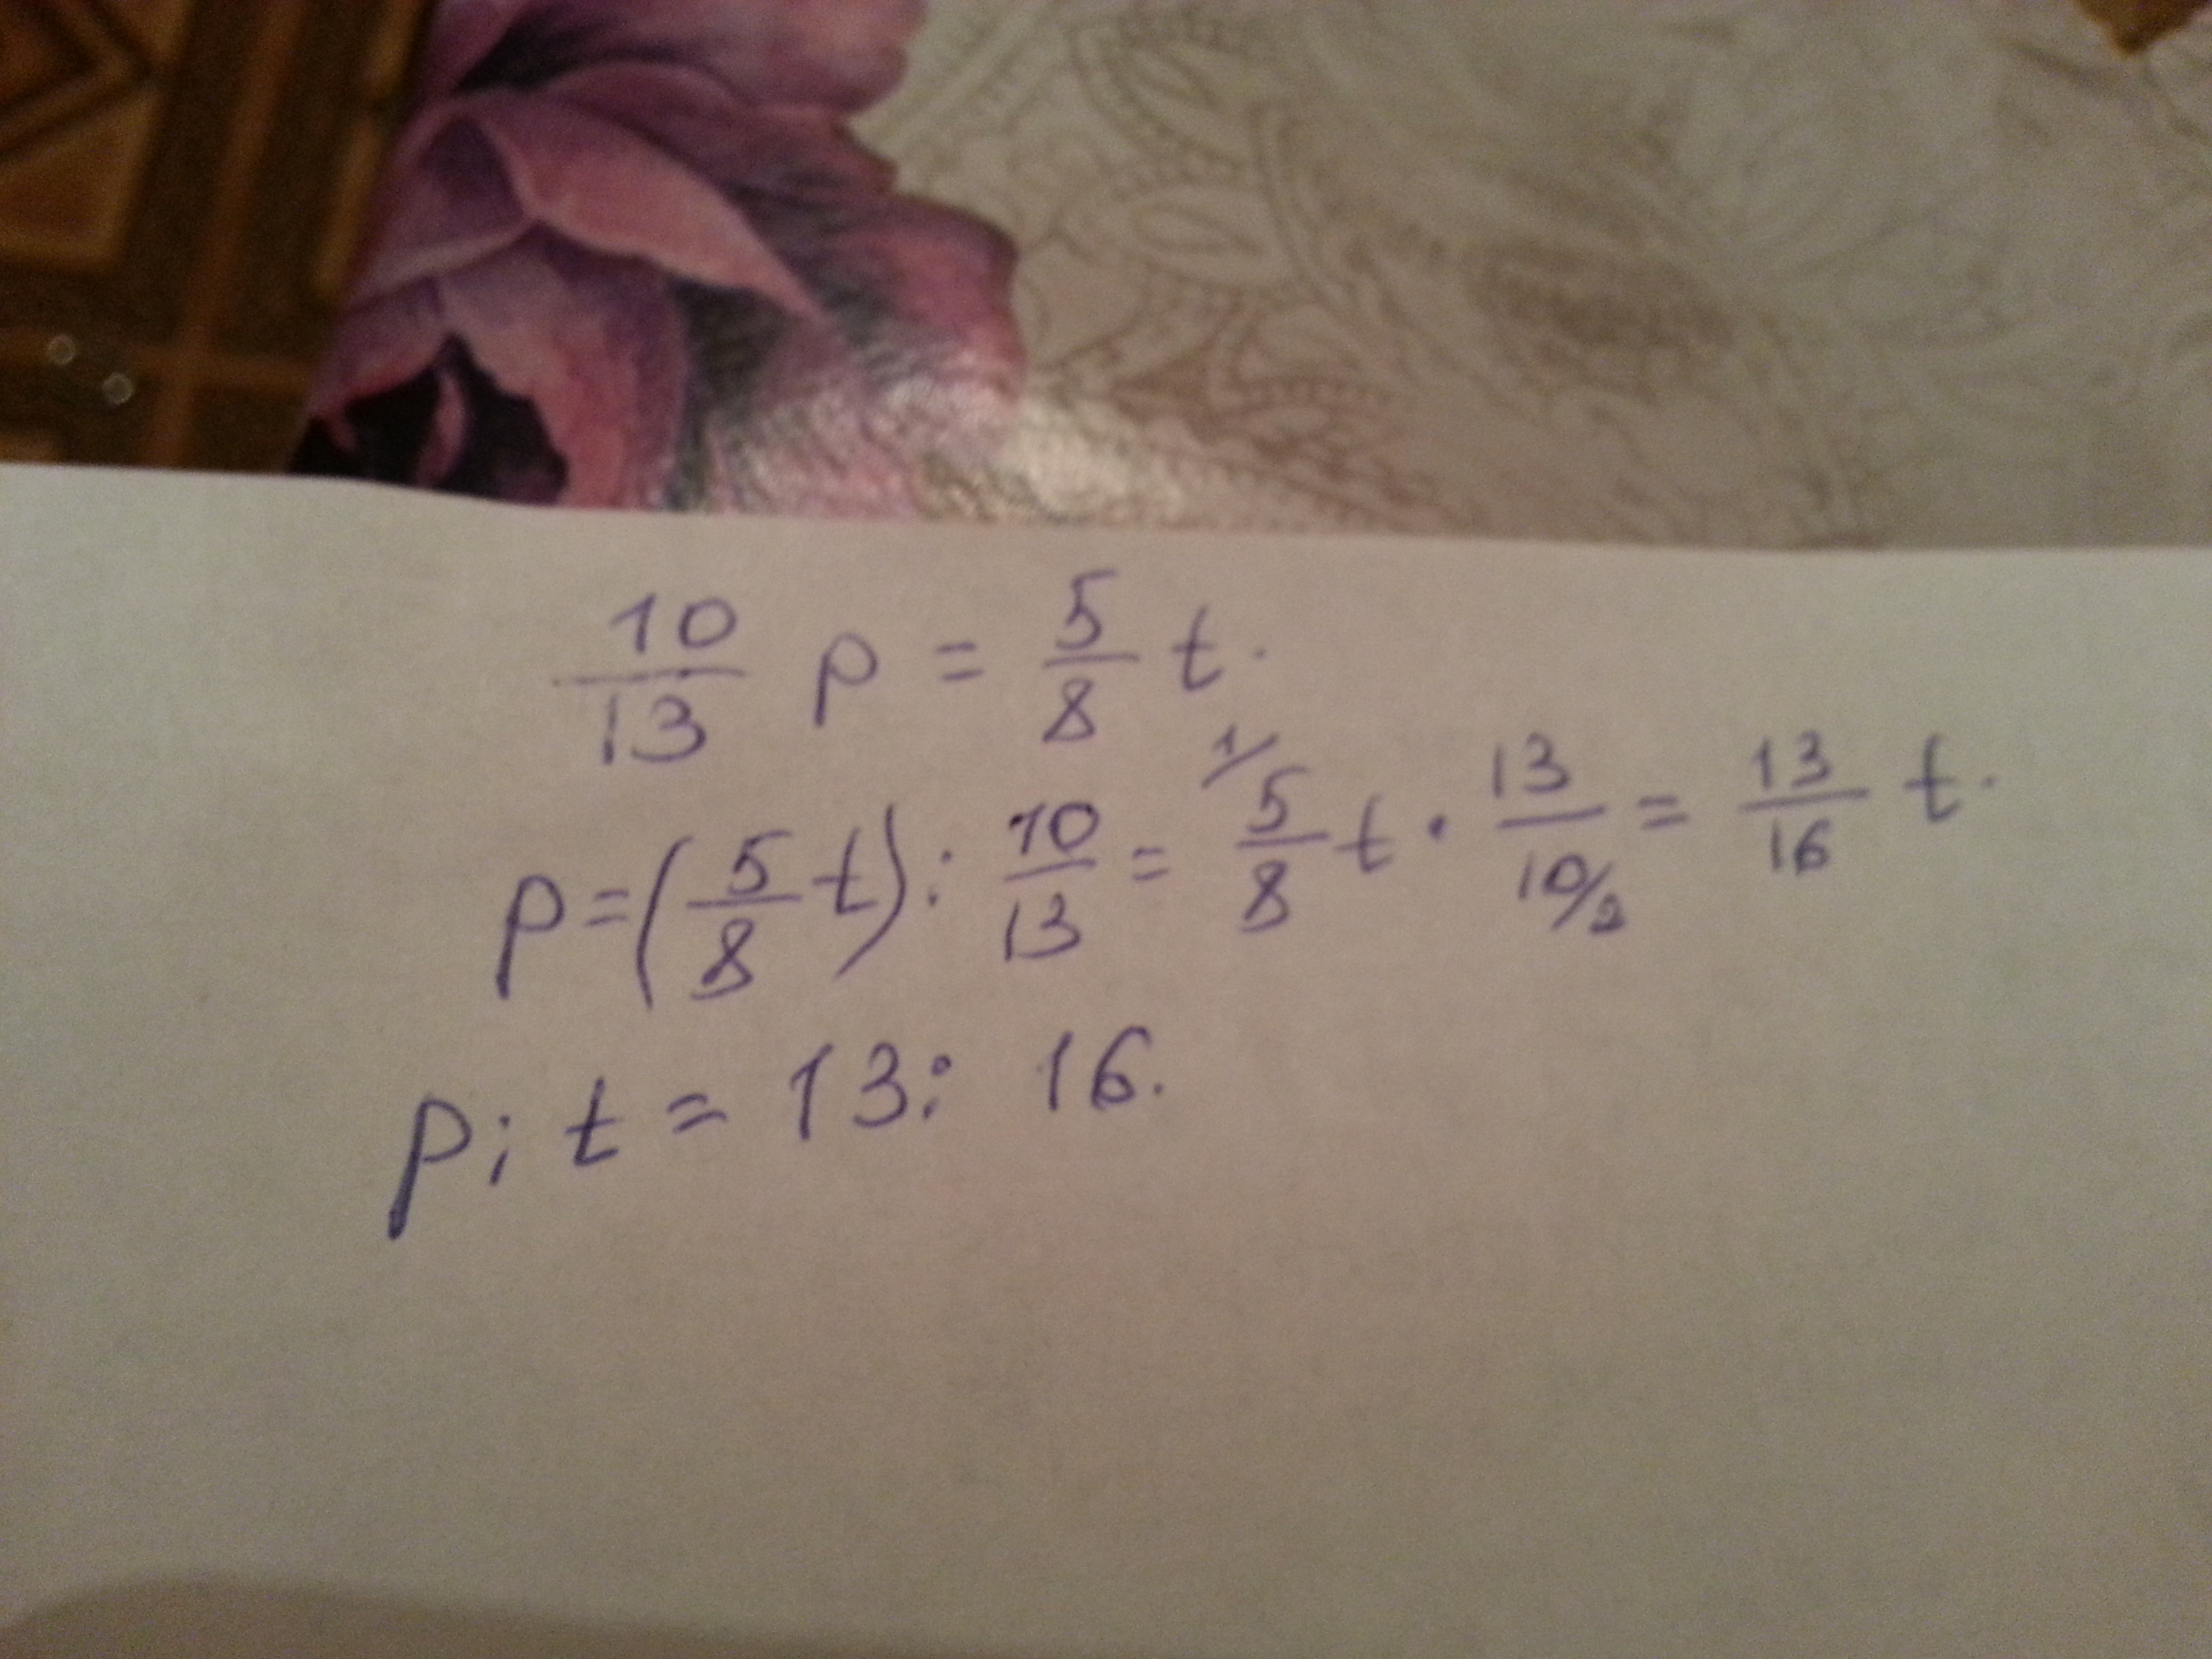 10/13 p = 5/8 t.
p = (5/8 t) : 10/13 = 1/ 5/8 t · 13/10/2 = 13/16 t.
p; t = 13 : 16.